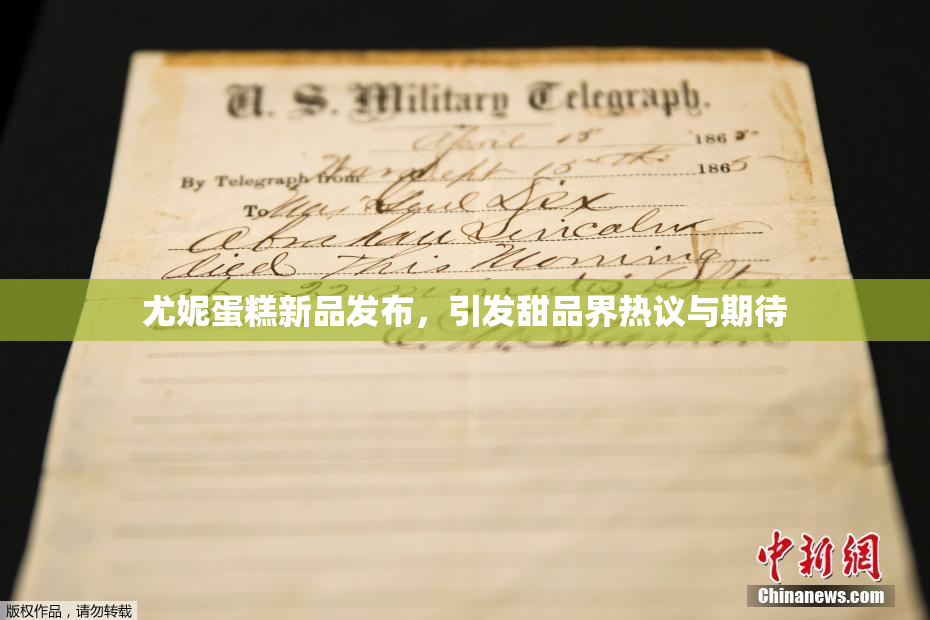 U. S. Military Telegraph.
April 15 1865
By Telegraph from War Dept 15th 1865
To Maj Genl Dix
Abraham Lincoln
died This Morning
at 22 minutes after
尤妮蛋糕新品发布，引发甜品界热议与期待
中新网
Chinanews.com
版权作品，请勿转载